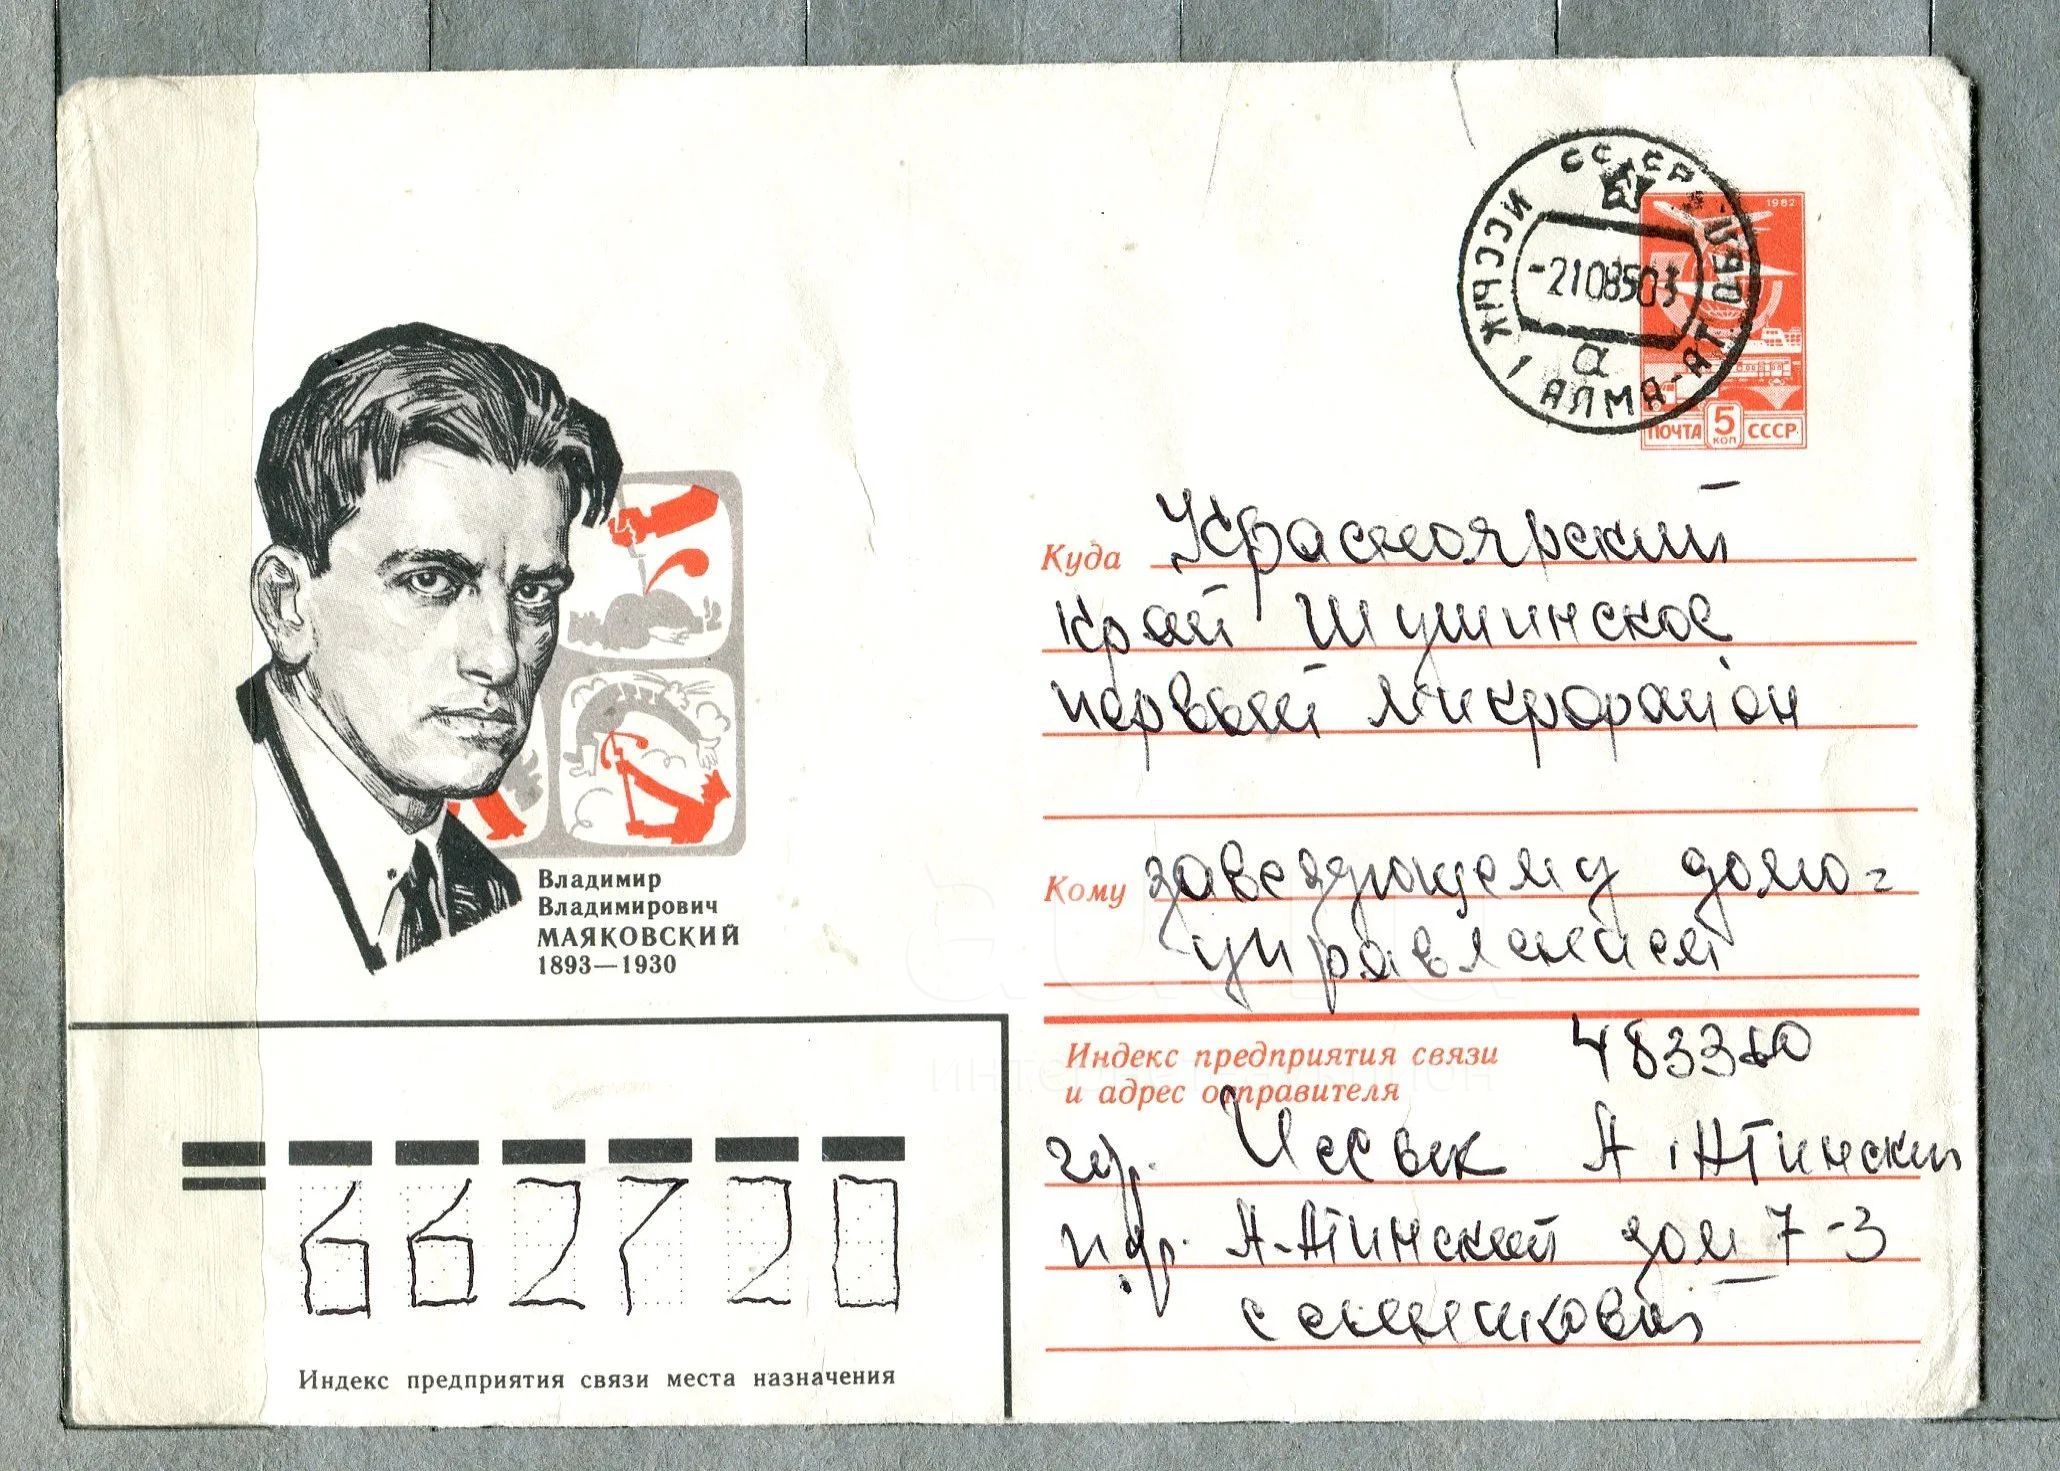 СССР
ИССЫК
АЛМА-АТ
-2108503
а
1982
ПОЧТА 5 КОП СССР
Куда Красноярский
край Шушинское
первый микрорайон
Владимир
Владимирович
МАЯКОВСКИЙ
1893—1930
Кому заведующему домо=
управлением
Индекс предприятия связи 483360
и адрес отправителя
гор. Иссык А.Атински
пр. А-Атинский дом 7-3
662720
Индекс предприятия связи места назначения